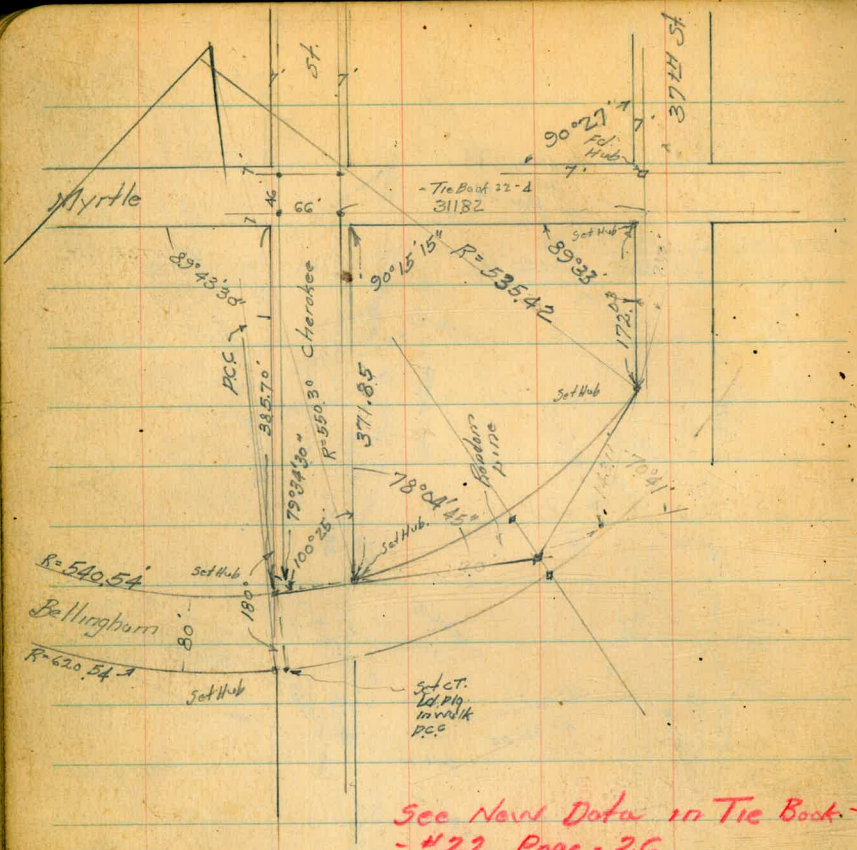 St.
7'
7'
37TH St
90°27'
7'
Fd.
Hub
7'
Myrtle
7'
46
7
66'
- Tie Book 22-4
31182
Set Hub
89°43'30"
90°15'15"
R=535.42
89°33'
172.03
P.C.C
385.70'
Cherokee
R=550.30
371.85
Set Hub
79°34'30"
100°25'
78°04'45"
Line
70°41'
Set Hub.
R=540.54'
Set Hub
Bellingham
80'
180°
R=620.54
Set Hub
Set CT.
Ld. Plg.
in walk
P.C.C
See New Data in Tie Book -
- #22 Page - 26